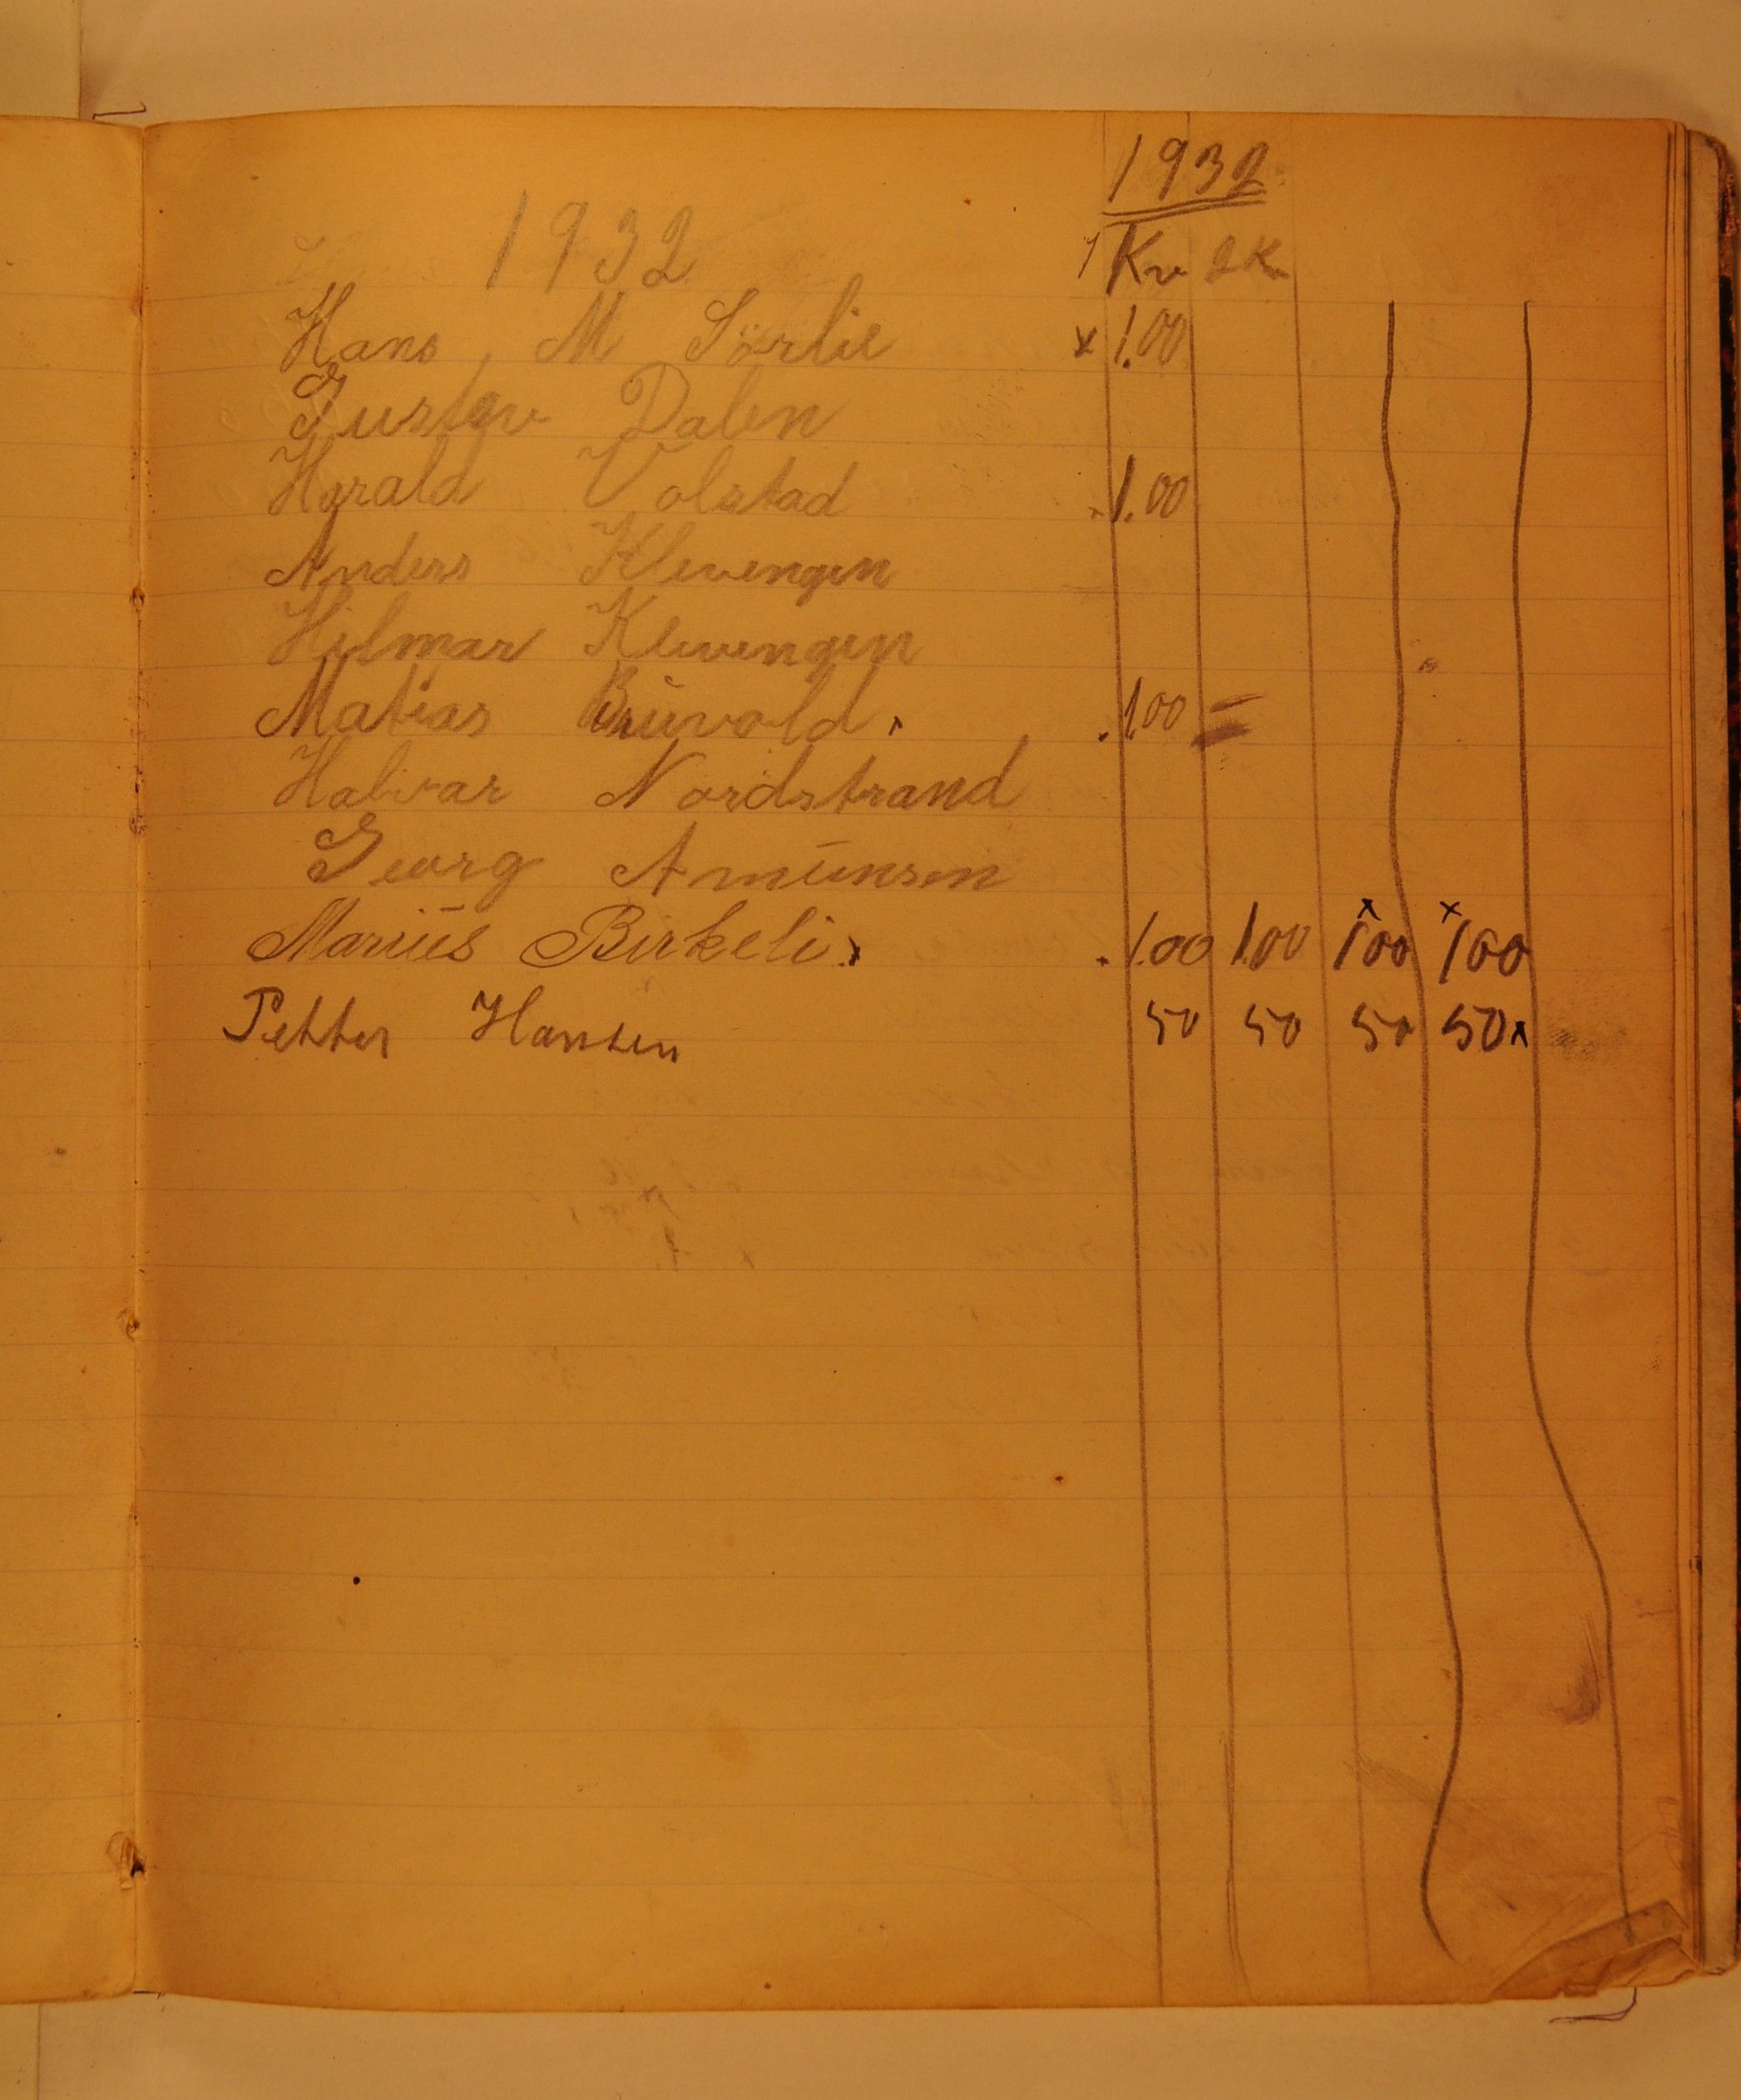 1932
1932
1 Kv 2 K
Hans M Sörlie x 1.00
Gustav Dalen
Harald Volstad 1.00
Anders Klevengen
Hilmar Klevengen
Matias Buvold 1.00 =
Halvar Nordstrand
Georg Amunsen
Marius Birkeli x 1.00 1.00 x 100 x 100
Petter Hansen 50 50 50 50 x